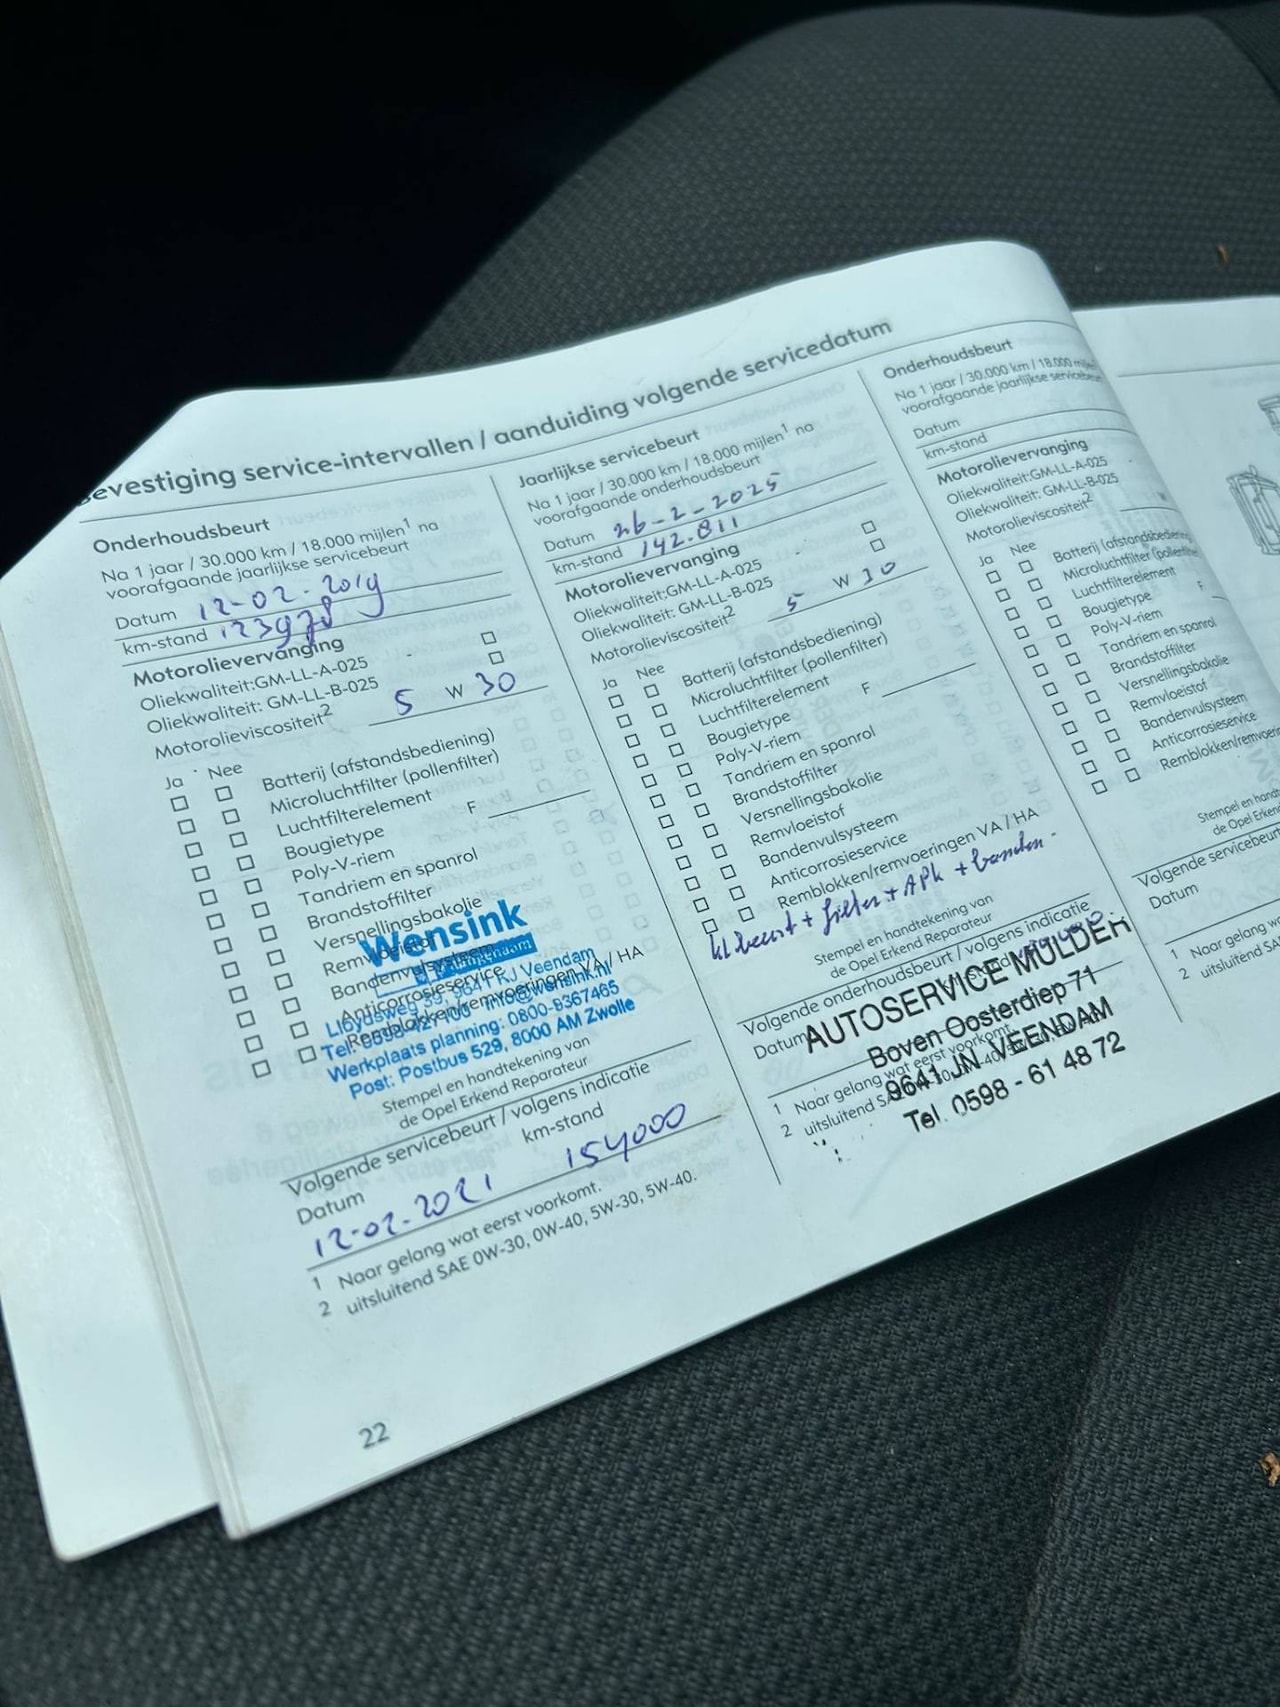 Bevestiging service-intervallen / aanduiding volgende servicedatum
Onderhoudsbeurt
Na 1 jaar / 30.000 km / 18.000 mijlen1 na
voorafgaande jaarlijkse servicebeurt
Datum 12-02-2019
km-stand 123978
Motorolievervanging
Oliekwaliteit:GM-LL-A-025
Oliekwaliteit: GM-LL-B-025
Motorolieviscositeit2 5 W 30
Ja Nee
Batterij (afstandsbediening)
Microluchtfilter (pollenfilter)
Luchtfilterelement
Bougietype F
Poly-V-riem
Tandriem en spanrol
Brandstoffilter
Versnellingsbakolie
Remvloeistof
Bandenvulsysteem
Anticorrosieservice
Remblokken/remvoeringen VA / HA
Wensink
Lloydsweg 39, 9641 KJ Veendam
info@wensink.nl
Werkplaats planning: 0800-8367465
Post: Postbus 529, 8000 AM Zwolle
Stempel en handtekening van
de Opel Erkend Reparateur
Volgende servicebeurt / volgens indicatie
Datum km-stand
12-02-2021 154000
1 Naar gelang wat eerst voorkomt.
2 uitsluitend SAE 0W-30, 0W-40, 5W-30, 5W-40.
22
Jaarlijkse servicebeurt
Na 1 jaar / 30.000 km / 18.000 mijlen1 na
voorafgaande onderhoudsbeurt
Datum 26-2-2025
km-stand 142.811
Motorolievervanging
Oliekwaliteit:GM-LL-A-025
Oliekwaliteit: GM-LL-B-025
Motorolieviscositeit2 5 W 30
Ja Nee
Batterij (afstandsbediening)
Microluchtfilter (pollenfilter)
Luchtfilterelement
Bougietype F
Poly-V-riem
Tandriem en spanrol
Brandstoffilter
Versnellingsbakolie
Remvloeistof
Bandenvulsysteem
Anticorrosieservice
Remblokken/remvoeringen VA / HA
kl beurt + filter + APK + banden.
Stempel en handtekening van
de Opel Erkend Reparateur
Volgende onderhoudsbeurt / volgens indicatie
Datum
AUTOSERVICE MULDER
Boven Oosterdiep 71
9641 JN VEENDAM
Tel. 0598 - 61 48 72
1 Naar gelang wat eerst voorkomt.
2 uitsluitend
Onderhoudsbeurt
Na 1 jaar / 30.000 km / 18.000
voorafgaande jaarlijkse
Datum
km-stand
Motorolievervanging
Oliekwaliteit:GM-LL-A-025
Oliekwaliteit: GM-LL-B-025
Motorolieviscositeit2
Ja Nee
Batterij
Microluchtfilter
Luchtfilterelement
Bougietype F
Poly-V-riem
Tandriem en spanrol
Brandstoffilter
Versnellingsbakolie
Remvloeistof
Bandenvulsysteem
Anticorrosieservice
Stempel en
de Opel
Volgende
Datum
1 Naar gelang
2 uitsluitend